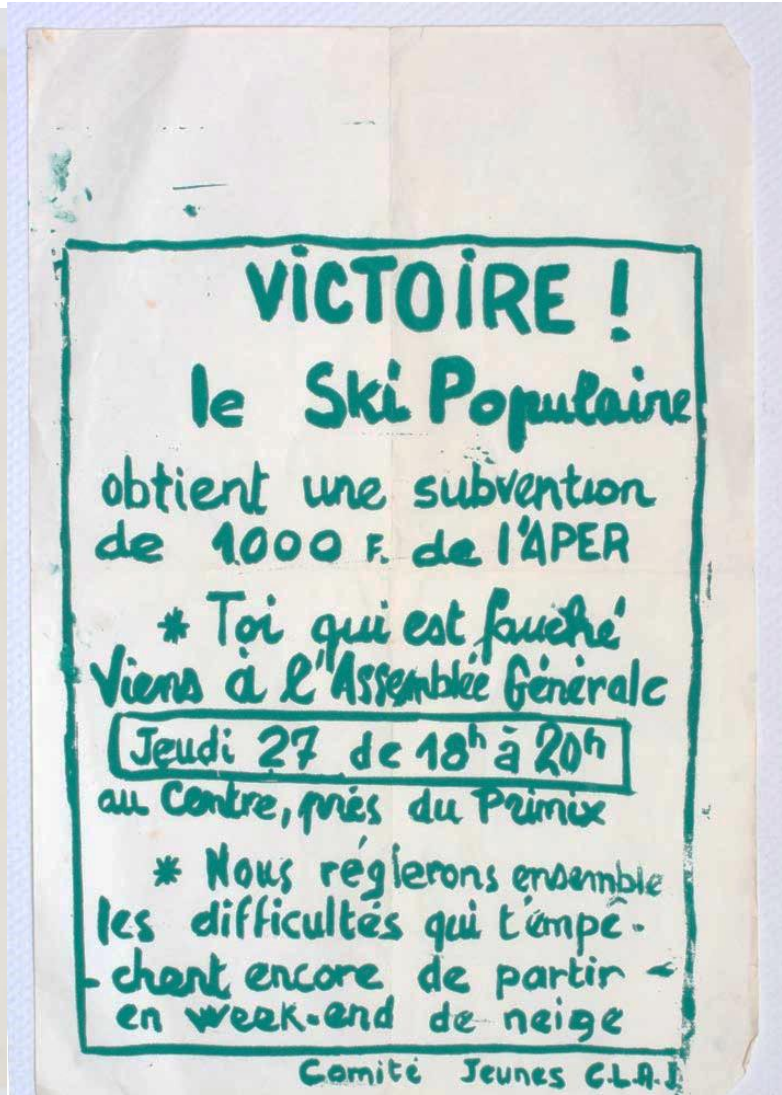 VICTOIRE !
le Ski Populaire
obtient une subvention
de 1000 F. de l'APER
* Toi qui est fauché
Viens à l'Assemblée Générale
Jeudi 27 de 18h à 20h
au Centre, près du Primix
* Nous réglerons ensemble
les difficultés qui t'empê-
-chent encore de partir
en week-end de neige
Comité Jeunes C.L.A.J.